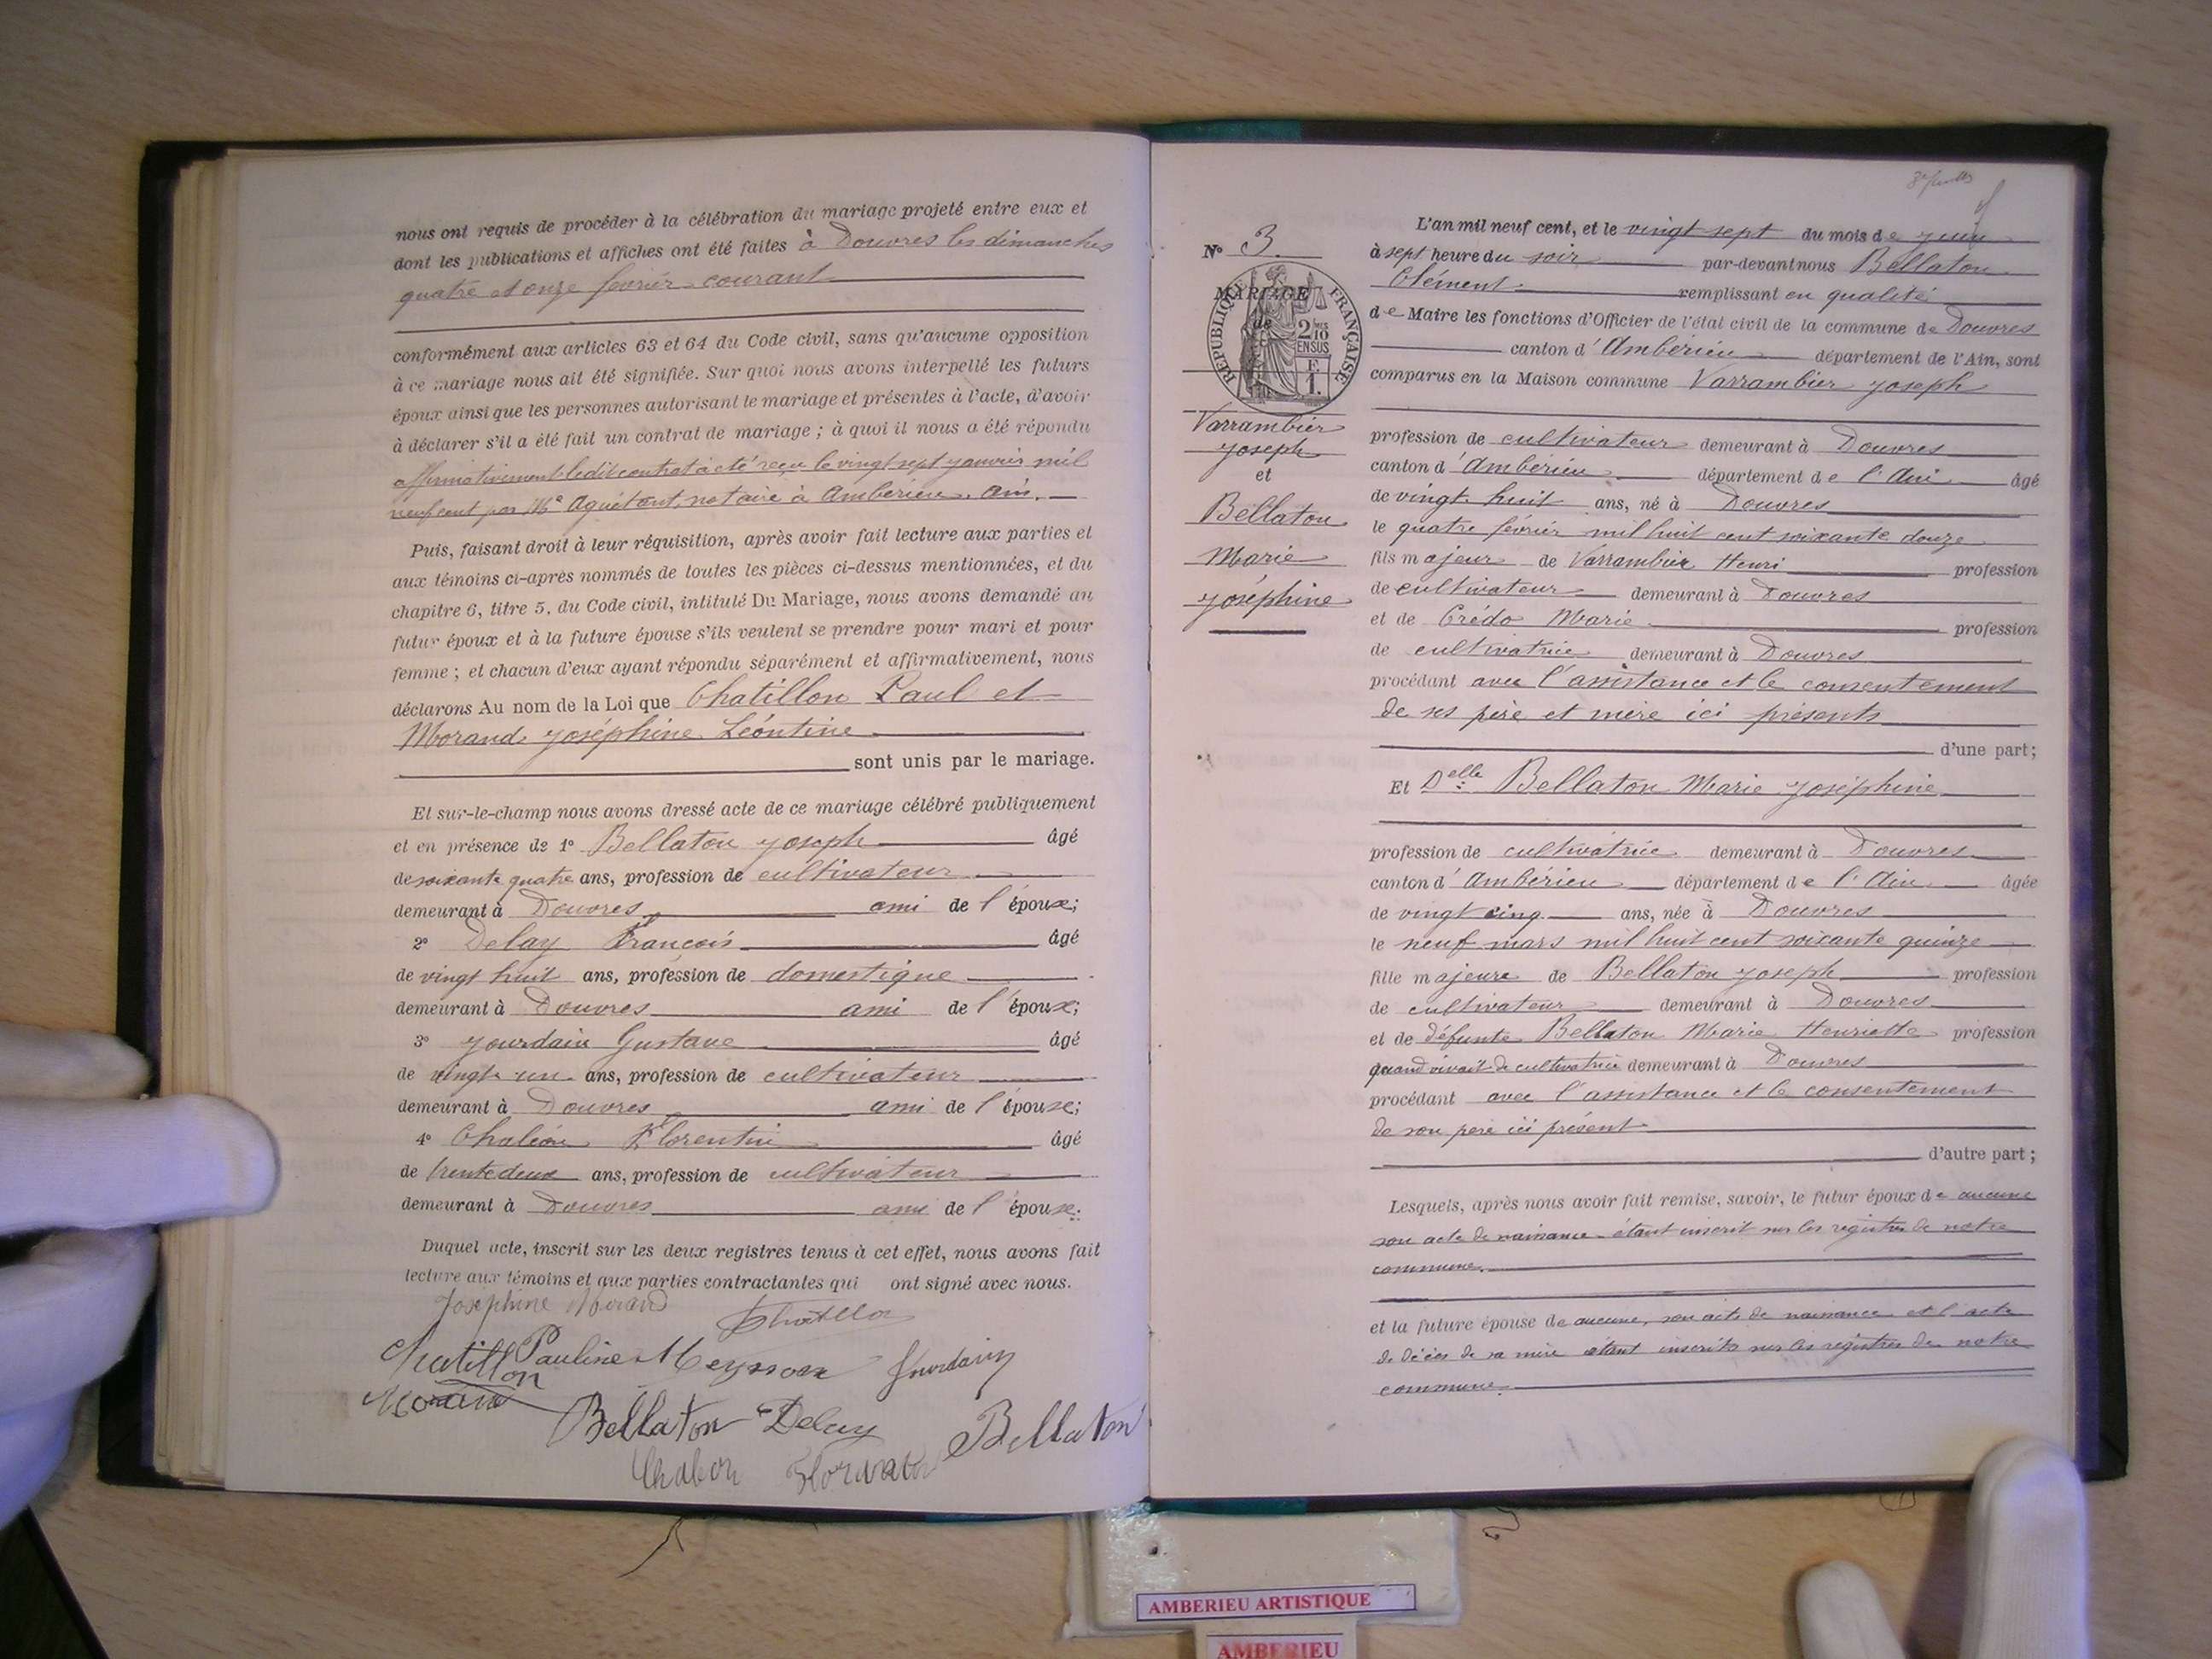 nous ont requis de procéder à la célébration du mariage projeté entre eux et
dont les publications et affiches ont été faites à Douvres les dimanches
quatre et onze février courant
conformément aux articles 63 et 64 du Code civil, sans qu'aucune opposition
à ce mariage nous ait été signifiée. Sur quoi nous avons interpellé les futurs
époux ainsi que les personnes autorisant le mariage et présentes à l'acte, d'avoir
à déclarer s'il a été fait un contrat de mariage ; à quoi il nous a été répondu
affirmativement ledit contrat a été reçu le vingt sept janvier mil
neuf cent par Me Aguétant, notaire à Ambérieu, Ain.
Puis, faisant droit à leur réquisition, après avoir fait lecture aux parties et
aux témoins ci-après nommés de toutes les pièces ci-dessus mentionnées, et du
chapitre 6, titre 5, du Code civil, intitulé Du Mariage, nous avons demandé au
futur époux et à la future épouse s'ils veulent se prendre pour mari et pour
femme ; et chacun d'eux ayant répondu séparément et affirmativement, nous
déclarons Au nom de la Loi que Chatillon Paul et
Morand Joséphine Léontine
sont unis par le mariage.
Et sur-le-champ nous avons dressé acte de ce mariage célébré publiquement
et en présence de 1° Bellaton Joseph âgé
de soixante quatre ans, profession de cultivateur
demeurant à Douvres ami de l'époux;
2° Delay François âgé
de vingt huit ans, profession de domestique
demeurant à Douvres ami de l'époux;
3° Jourdain Gustave âgé
de vingt un ans, profession de cultivateur
demeurant à Douvres ami de l'épouse;
4° Florentin âgé
de trente deux ans, profession de cultivateur
demeurant à Douvres ami de l'épouse.
Duquel acte, inscrit sur les deux registres tenus à cet effet, nous avons fait
lecture aux témoins et aux parties contractantes qui ont signé avec nous.
Joséphine Morand
Chatillon Pauline Meysson Jourdain
Morand Bellaton Delay Bellaton
N° 3
MARIAGE
de
RÉPUBLIQUE FRANÇAISE
2/10
EN SUS
F
1.
Varrambier
Joseph
et
Bellaton
Marie
Joséphine
L'an mil neuf cent, et le vingt sept du mois de
à sept heure du soir par-devant nous Bellaton
Clément remplissant en qualité
de Maire les fonctions d'Officier de l'état civil de la commune de Douvres
canton d'Ambérieu département de l'Ain, sont
comparus en la Maison commune Varrambier Joseph
profession de cultivateur demeurant à Douvres
canton d'Ambérieu département de l'Ain âgé
de vingt huit ans, né à Douvres
le quatre février mil huit cent soixante douze
fils majeur de Varrambier Henri profession
de cultivateur demeurant à Douvres
et de Crédo Marie profession
de cultivatrice demeurant à Douvres
procédant avec l'assistance et le consentement
de ses père et mère ici présents
d'une part;
Et Delle Bellaton Marie Joséphine
profession de cultivatrice demeurant à Douvres
canton d'Ambérieu département de l'Ain âgée
de vingt cinq ans, née à Douvres
le neuf mars mil huit cent soixante quinze
fille majeure de Bellaton Joseph profession
de cultivateur demeurant à Douvres
et de défunte Bellaton Marie Henriette profession
quand vivait de cultivatrice demeurant à Douvres
procédant avec l'assistance et le consentement
de son père ici présent
d'autre part ;
Lesquels, après nous avoir fait remise, savoir, le futur époux de aucune
son acte de naissance étant inscrit sur les registres de notre
commune.
et la future épouse de aucune, son acte de naissance et l'acte
de décès de sa mère étant inscrits sur les registres de notre
commune.
AMBERIEU ARTISTIQUE
AMBERIEU